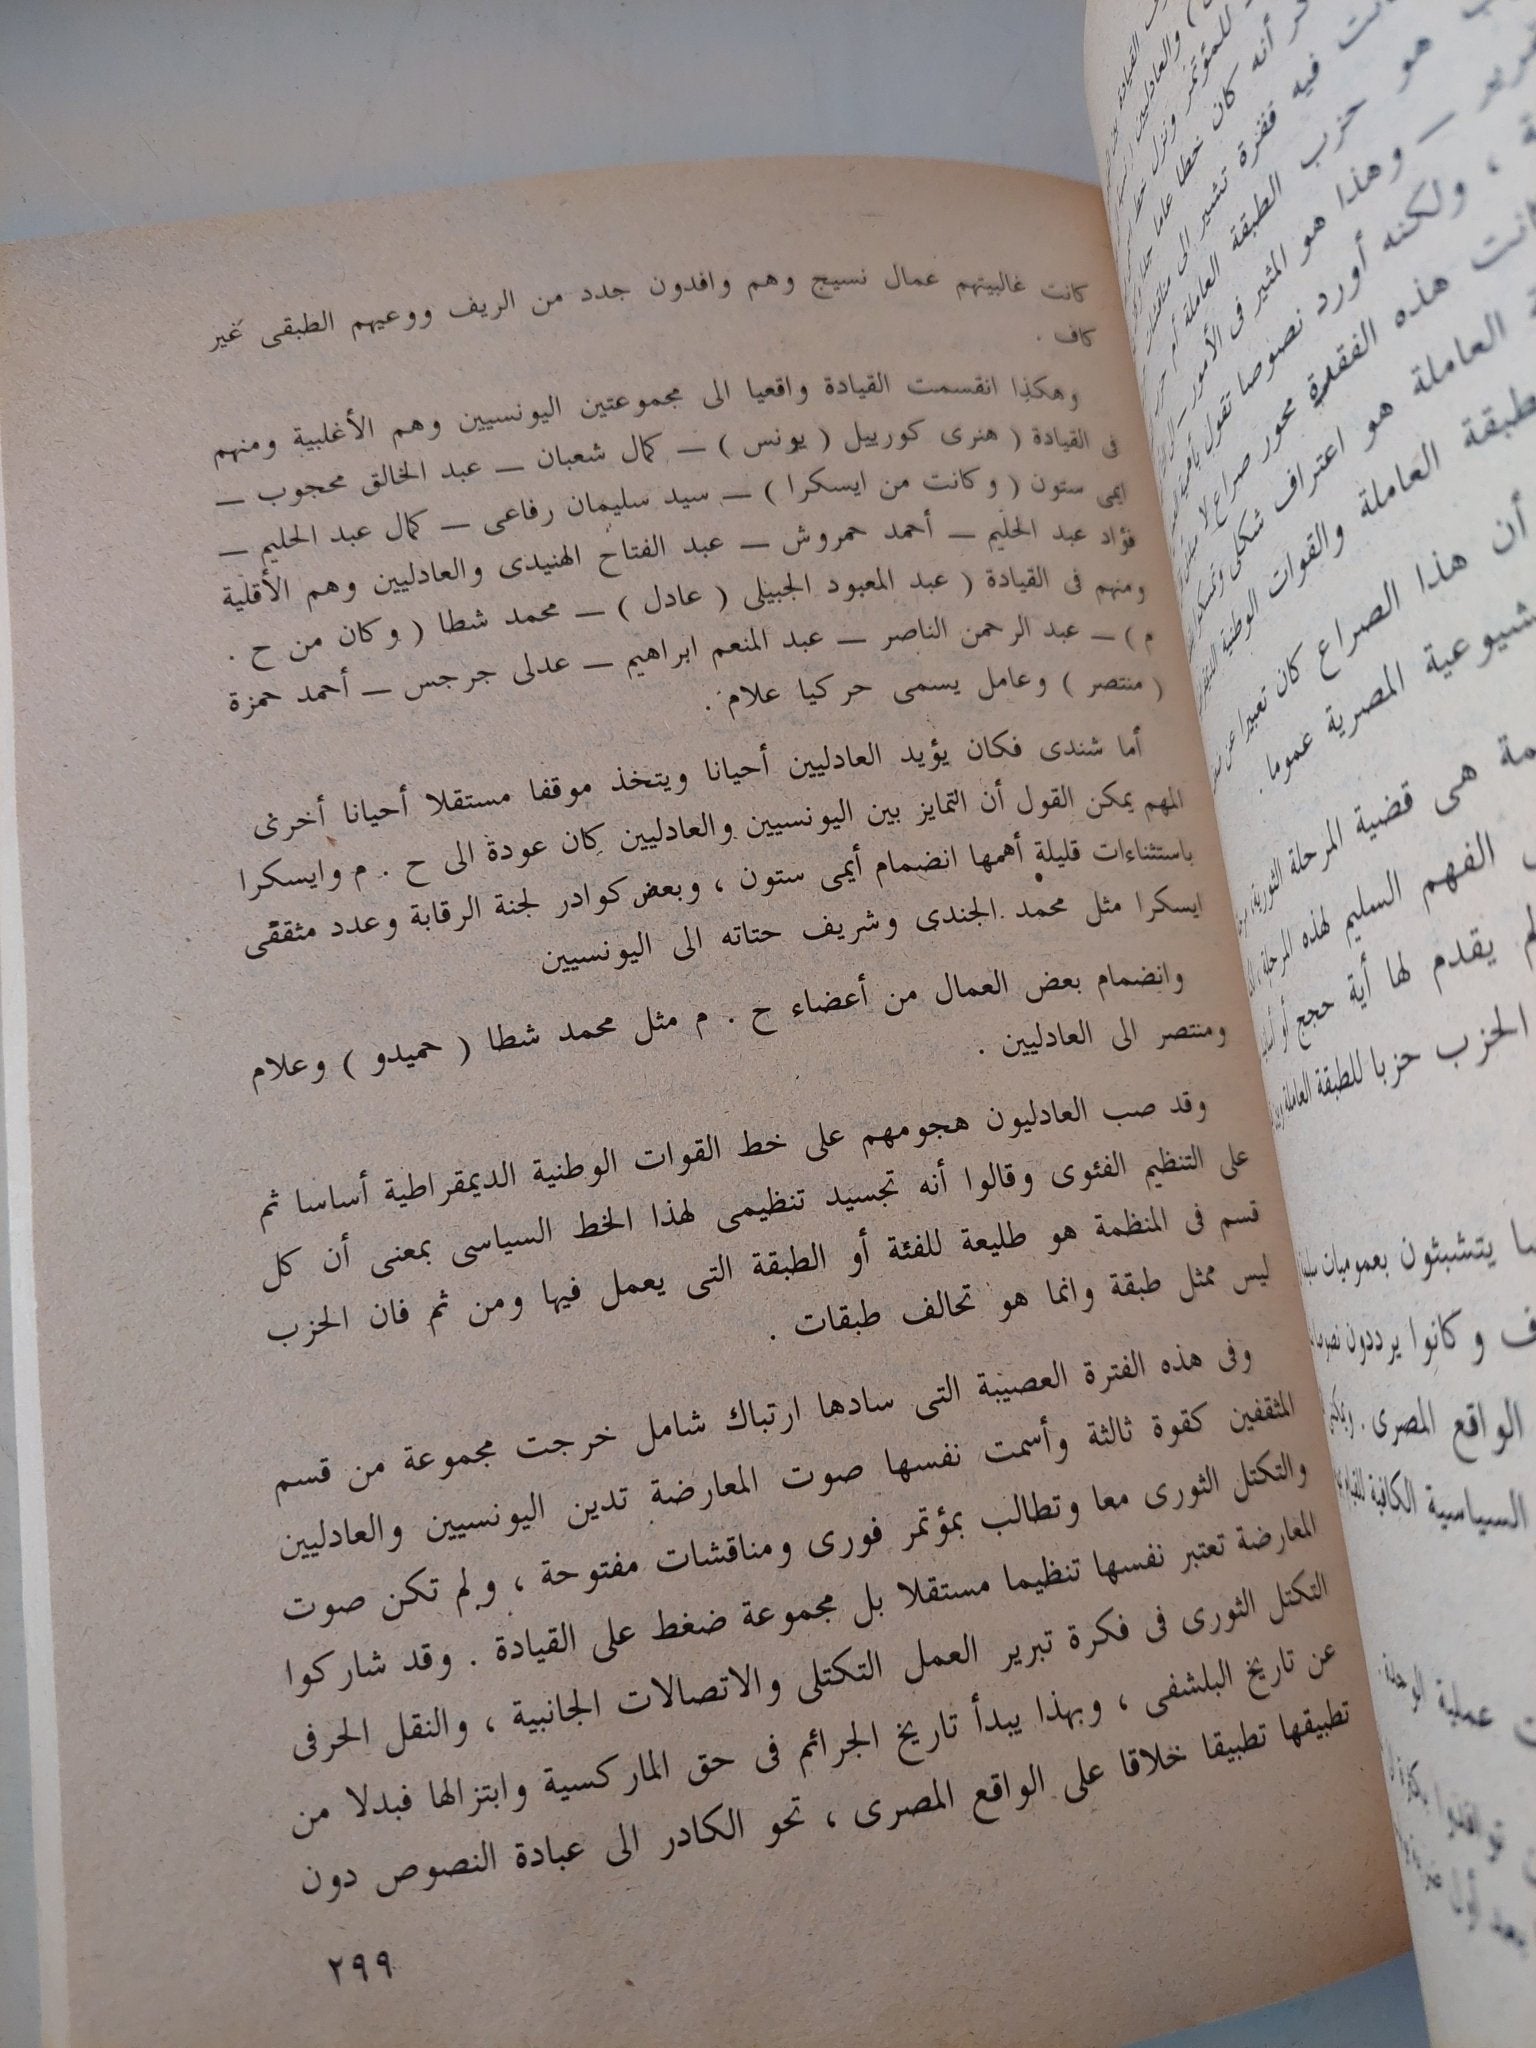 كانت غالبيتهم عمال نسيج وهم وافدون جدد من الريف ووعيهم الطبقى غير
كاف .
وهكذا انقسمت القيادة واقعيا الى مجموعتين اليونسيين وهم الأغلبية ومنهم
فى القيادة ( هنرى كورييل ( يونس ) — كمال شعبان — عبد الخالق محجوب —
ايمى ستون ( وكانت من ايسكرا ) — سيد سليمان رفاعى — كمال عبد الحليم —
فؤاد عبد الحليم — أحمد حمروش — عبد الفتاح الهنيدى والعادليين وهم الأقلية
ومنهم فى القيادة ( عبد المعبود الجبيلى ( عادل ) — محمد شطا ( وكان من ح .
م ) — عبد الرحمن الناصر — عبد المنعم ابراهيم — عدلى جرجس — أحمد حمزة
( منتصر ) وعامل يسمى حركيا علام .
أما شندى فكان يؤيد العادليين أحيانا ويتخذ موقفا مستقلا أحيانا أخرى
المهم يمكن القول أن التمايز بين اليونسيين والعادليين كان عودة الى ح . م وايسكرا
باستثناءات قليلة أهمها انضمام أيمى ستون ، وبعض كوادر لجنة الرقابة وعدد مثقفى
ايسكرا مثل محمد الجندى وشريف حتاته الى اليونسيين
وانضمام بعض العمال من أعضاء ح . م مثل محمد شطا ( حميدو ) وعلام
ومنتصر الى العادليين .
وقد صب العادليون هجومهم على خط القوات الوطنية الديمقراطية أساسا ثم
على التنظيم الفئوى وقالوا أنه تجسيد تنظيمى لهذا الخط السياسى بمعنى أن كل
قسم فى المنظمة هو طليعة للفئة أو الطبقة التى يعمل فيها ومن ثم فان الحزب
ليس ممثل طبقة وانما هو تحالف طبقات .
وفى هذه الفترة العصيبة التى سادها ارتباك شامل خرجت مجموعة من قسم
المثقفين كقوة ثالثة وأسمت نفسها صوت المعارضة تدين اليونسيين والعادليين
والتكتل الثورى معا وتطالب بمؤتمر فورى ومناقشات مفتوحة ، ولم تكن صوت
المعارضة تعتبر نفسها تنظيما مستقلا بل مجموعة ضغط على القيادة . وقد شاركوا
التكتل الثورى فى فكرة تبرير العمل التكتلى والاتصالات الجانبية ، والنقل الحرفى
عن تاريخ البلشفى ، وبهذا يبدأ تاريخ الجرائم فى حق الماركسية وابتزالها فبدلا من
تطبيقها تطبيقا خلاقا على الواقع المصرى ، تحو الكادر الى عبادة النصوص دون
٢٩٩
هو حزب الطبقة العاملة أم حزب
وهذا هو المثير فى الأمور
، ولكنه أورد نصوصا تقول
هذه الفقرة محور صراع
العاملة هو اعتراف شكلى
طبقة العاملة والقوات الوطنية
أن هذا الصراع كان تعبيرا عن
المصرية عموما .
هى قضية المرحلة الثورية
الفهم السليم لهذه المرحلة
يقدم لها أية حجج أو
الحزب حزبا للطبقة العاملة
يتشبثون بعموميات
وكانوا يرددون
الواقع المصرى .
السياسية الكافية
عملية